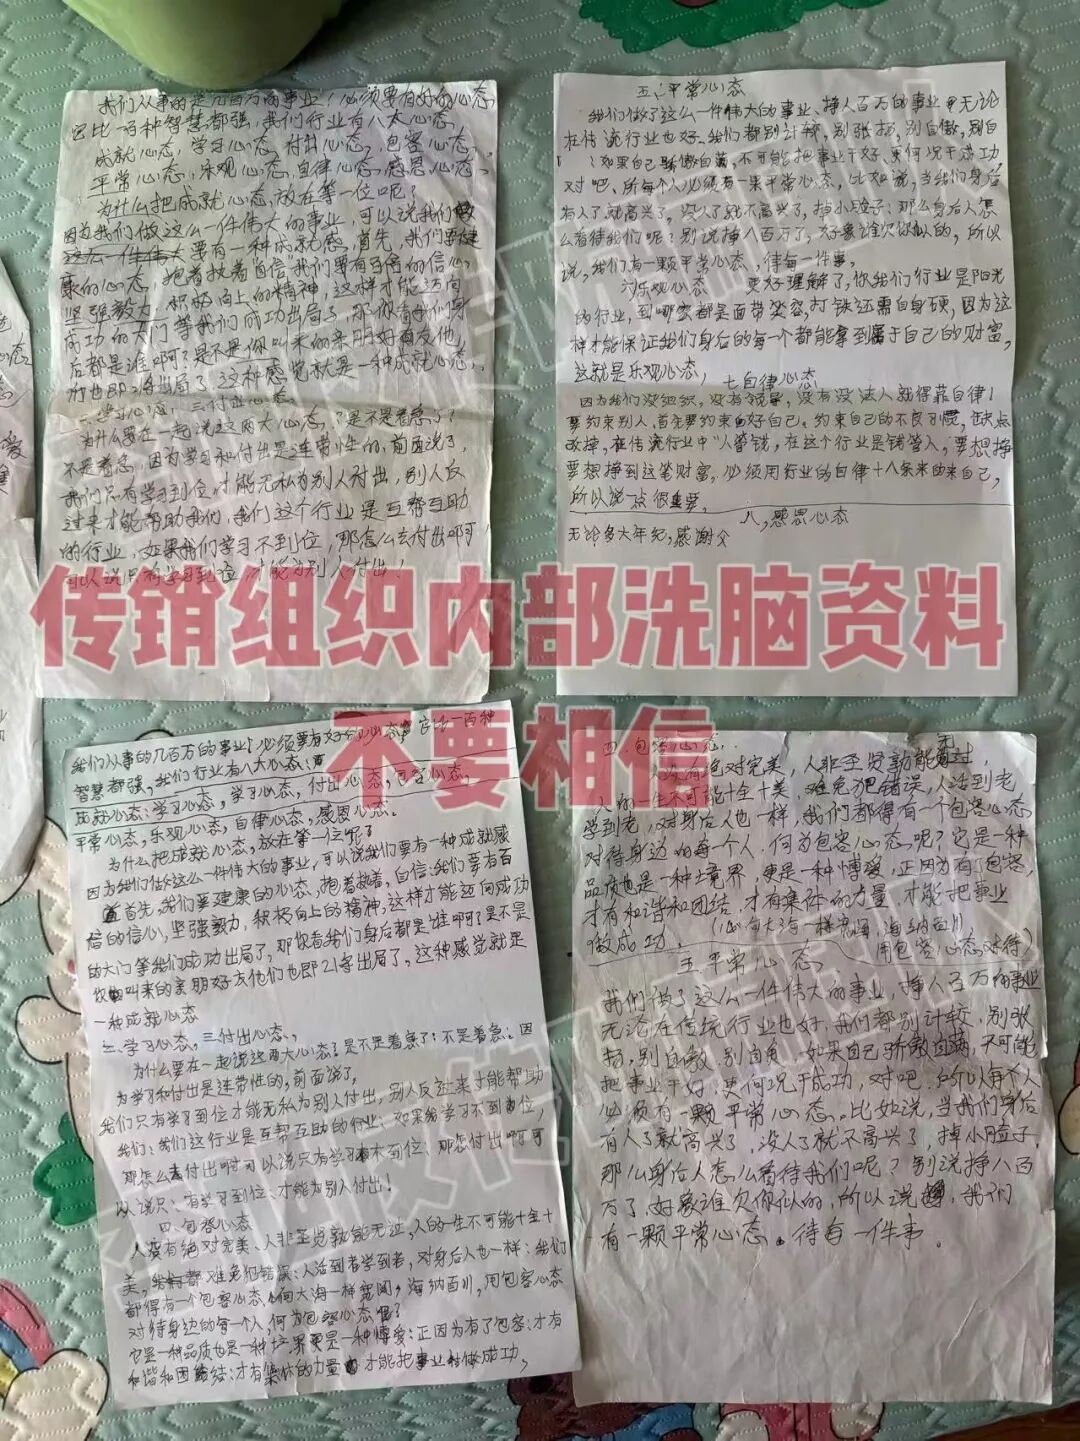 我们从事的是几百万的事业！必须要有好的心态，
它比一百种智慧都强，我们行业有八大心态，
成就心态，学习心态，付出心态，包容心态，
平常心态，乐观心态，自律心态，感恩心态。
为什么把成就心态，放在第一位呢？
因为我们做这么一件伟大的事业，可以说我们
这么一件伟大要有一种成就感，首先，我们要健
康的心态，抱着执着"自信"我们要有百倍的信心，
坚强毅力，积极向上的精神，这样才能迈向
成功的大门等我们成功出局了，那你看我们身
后都是谁啊？是不是你叫来的亲朋好友他
们也即将出局了，这种感觉就是一种成就心态，
二学习心态，三付出心态
为什么要在一起说这两大心态，？是不是着急了？
不是着急，因为学习和付出是连带性的，前面说了，
我们只有学习到位，才能无私为别人付出，别人反
过来才能帮助我们，我们这个行业是互帮互助
的行业，如果我们学习不到位，那怎么去付出啊可
可以说只有学习到位，才能为别人付出！
五、平常心态
我们做了这么一件伟大的事业，挣八百万的事业 无论
在传统行业也好，我们都别计较，别张扬，别自傲，别自
如果自己骄傲自满，不可能把事业干好，更何况干成功，
对吧，所每个人必须有一果平常心态，比如说，当我们身后
有人了就高兴了，没人了就不高兴了，掉小脸子：那么身后人怎
么看待我们呢？别说挣八百万了，好象谁欠你似的，所以
说，我们有一颗平常心态，待每一件事，
六乐观心态 更好理解了，你我们行业是阳光
的行业，到哪家都是面带笑容，打铁还需自身硬，因为这
样才能保证我们身后的每一个都能拿到属于自己的财富，
这就是乐观心态，
七自律心态
因为我们没组织，没有领导，没有没法人就得靠自律！
要约束别人，首先要约束好自己。约束自己的不良习惯，缺点
改掉，在传统行业中"人管钱，在这个行业是钱管人，要想挣
要想挣到这笔财富，必须用行业的自律十八条来由来自己，
所以说一点很重要，
八，感恩心态
无论多大年纪，感谢父
传销组织内部洗脑资料
不要相信
我们从事的几百万的事业！必须要有好的心态 它比一百种
智慧都强，我们行业有八大心态，
成就心态：学习心态，学习心态，付出心态，包容心态，
平常心态，乐观心态，自律心态，感恩心态。
为什么把成就心态，放在第一位呢？
因为我们做这么一件伟大的事业，可以说我们要有一种成就感
首先，我们要建康的心态，抱着执着，自信：我们要有百
倍的信心，坚强毅力，积极向上的精神，这样才能迈向成功
的大门等我们成功出局了，那你看我们身后都是谁啊？是不是
你叫来的亲朋好友他们也即将出局了，这种感觉就是
一种成就心态
二、学习心态，三付出心态，
为什么要在一起说这两大心态？是不是着急了？不是着急：因
为学习和付出是连带性的，前面说了，
我们只有学习到位才能无私为别人付出，别人反过来才能帮助
我们：我们这行业是互帮互助的行业：如果我学习不到位，
那怎么去付出啊可以说只有学习木到位：那怎付出啊可可
以说只：有学习到位：才能为别人付出！
四、包容心态
人没有绝对完美、人非圣贤孰能无过，人的一生不可能十全十
美，都难免犯错误：人活到老学到老，对身后人也一样：我们
都得有一个包容心态，心向大海一样宽阔，海纳百川，用包容心态
对待身边的每一个人，何为包容心态呢？
它是一种品质也是一种境界更是一种博爱：正因为有了包容：才有
和谐和团结：才有集体的力量才能把事业做成功，
四、包容心态..
人没有绝对完美，人非圣贤孰能无过，
人的一生不可能十全十美，难免犯错误，人活到老，
学到老，对身后人也一样，我们都得有一个包容心态
对待身边的每个人，何为包容心态呢？它是一种
品质也是一种境界，更是一种博爱，正因为有了包容，
才有和谐和团结，才有集体的力量，才能把事业
做成功，（心向大海一样宽阔，海纳百川
用包容心态对待）
五平常心态，
我们做了这么一件伟大的事业，挣八百万的事业
无论在传统行业也好，我们都别计较，别张
扬，别自傲，别自负，如果自己骄傲自满，不可能
把事业干好，更何况干成功，对吧，所以每个人
必须有一颗平常心态。比如说，当我们身后
有人了就高兴了，没人了就不高兴了，掉小脸子，
那么身后人怎么看待我们呢？别说挣八百
万了，好象谁欠你似的，所以说，我们
有一颗平常心态。待每一件事。